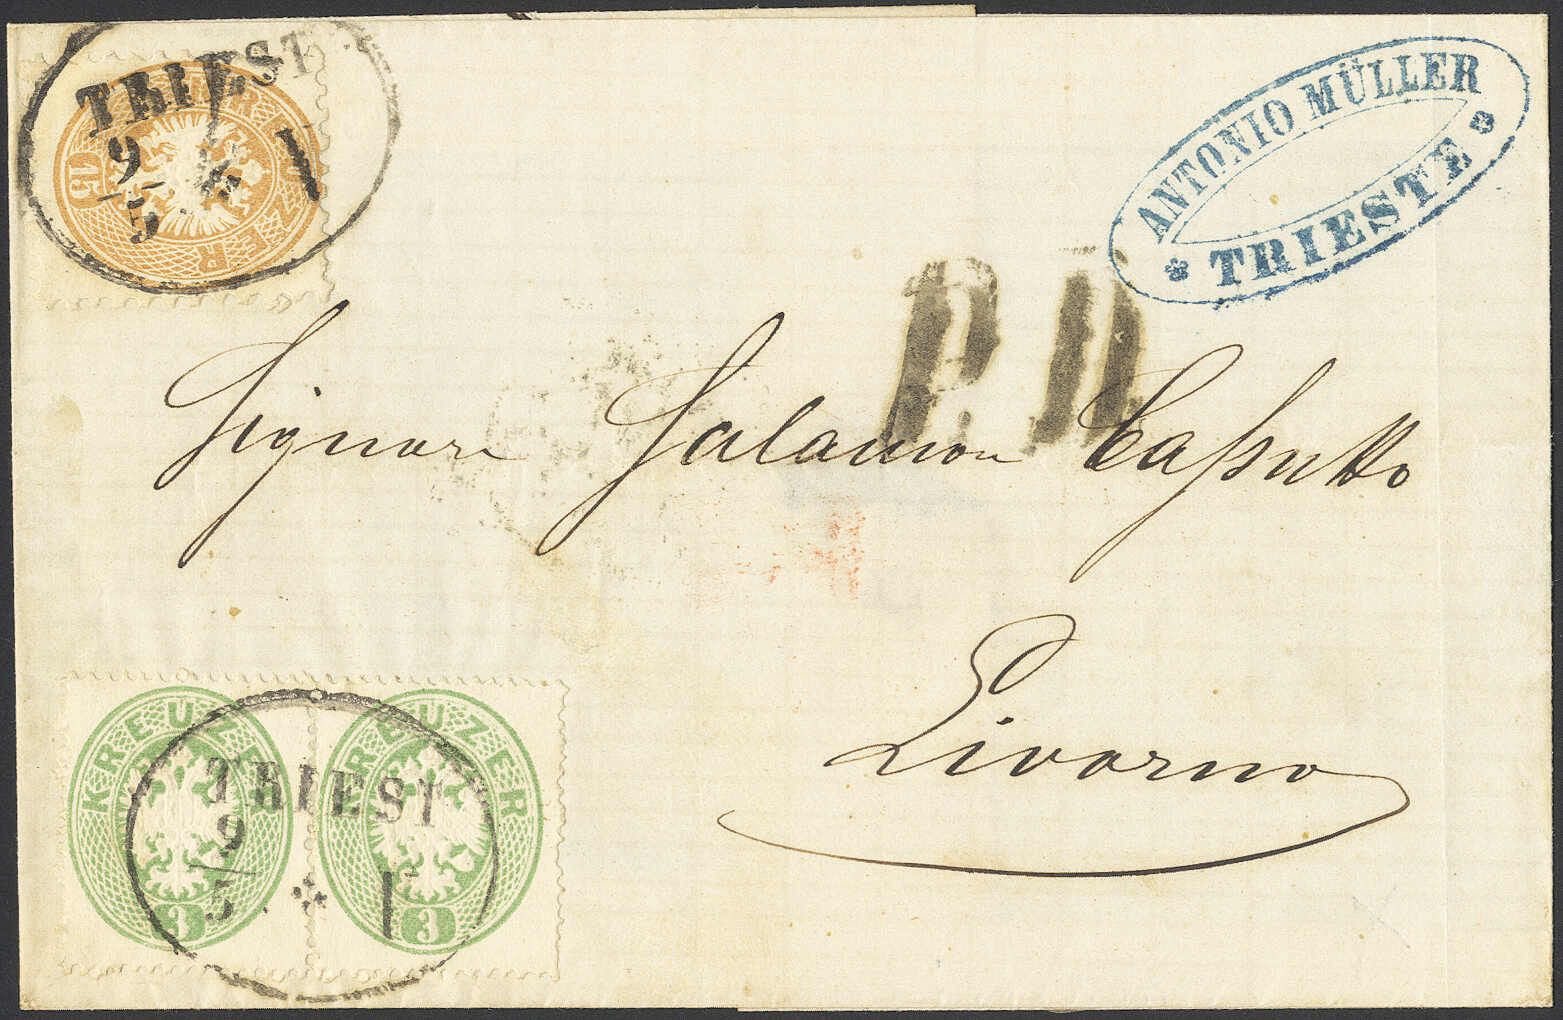 TRIEST
9/5 1
15 KREUZER
ANTONIO MÜLLER
TRIESTE
P.D.
Signore Salamon Caputto
Livorno
KREUZER KREUZER
TRIEST
9/5 1
3 3